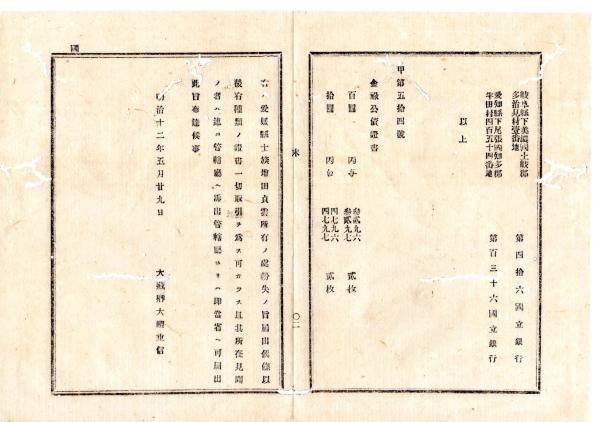 岐阜縣下美濃國土岐郡
多治見村壹番地
第四拾六國立銀行
愛知縣下尾張國知多郡
半田村四百五十四番地
第百三十六國立銀行
以上
甲第五拾四號
金祿公債證書
百圓 丙 参貳九六 貳枚
参貳九七
拾圓 丙 四七九六 貳枚
四七九七
〇二
右ハ愛媛縣士族増田貞雲所有ノ處紛失ノ旨届出候條以
後右種類ノ證書一切取引ヲ爲ス可カラス且其所在見聞
ノ者ハ速ニ管轄廳ヘ届出管轄廳ヨリハ即當省ヘ可届出
此旨布達候事
明治十二年五月廿九日
大藏卿大隈重信
國